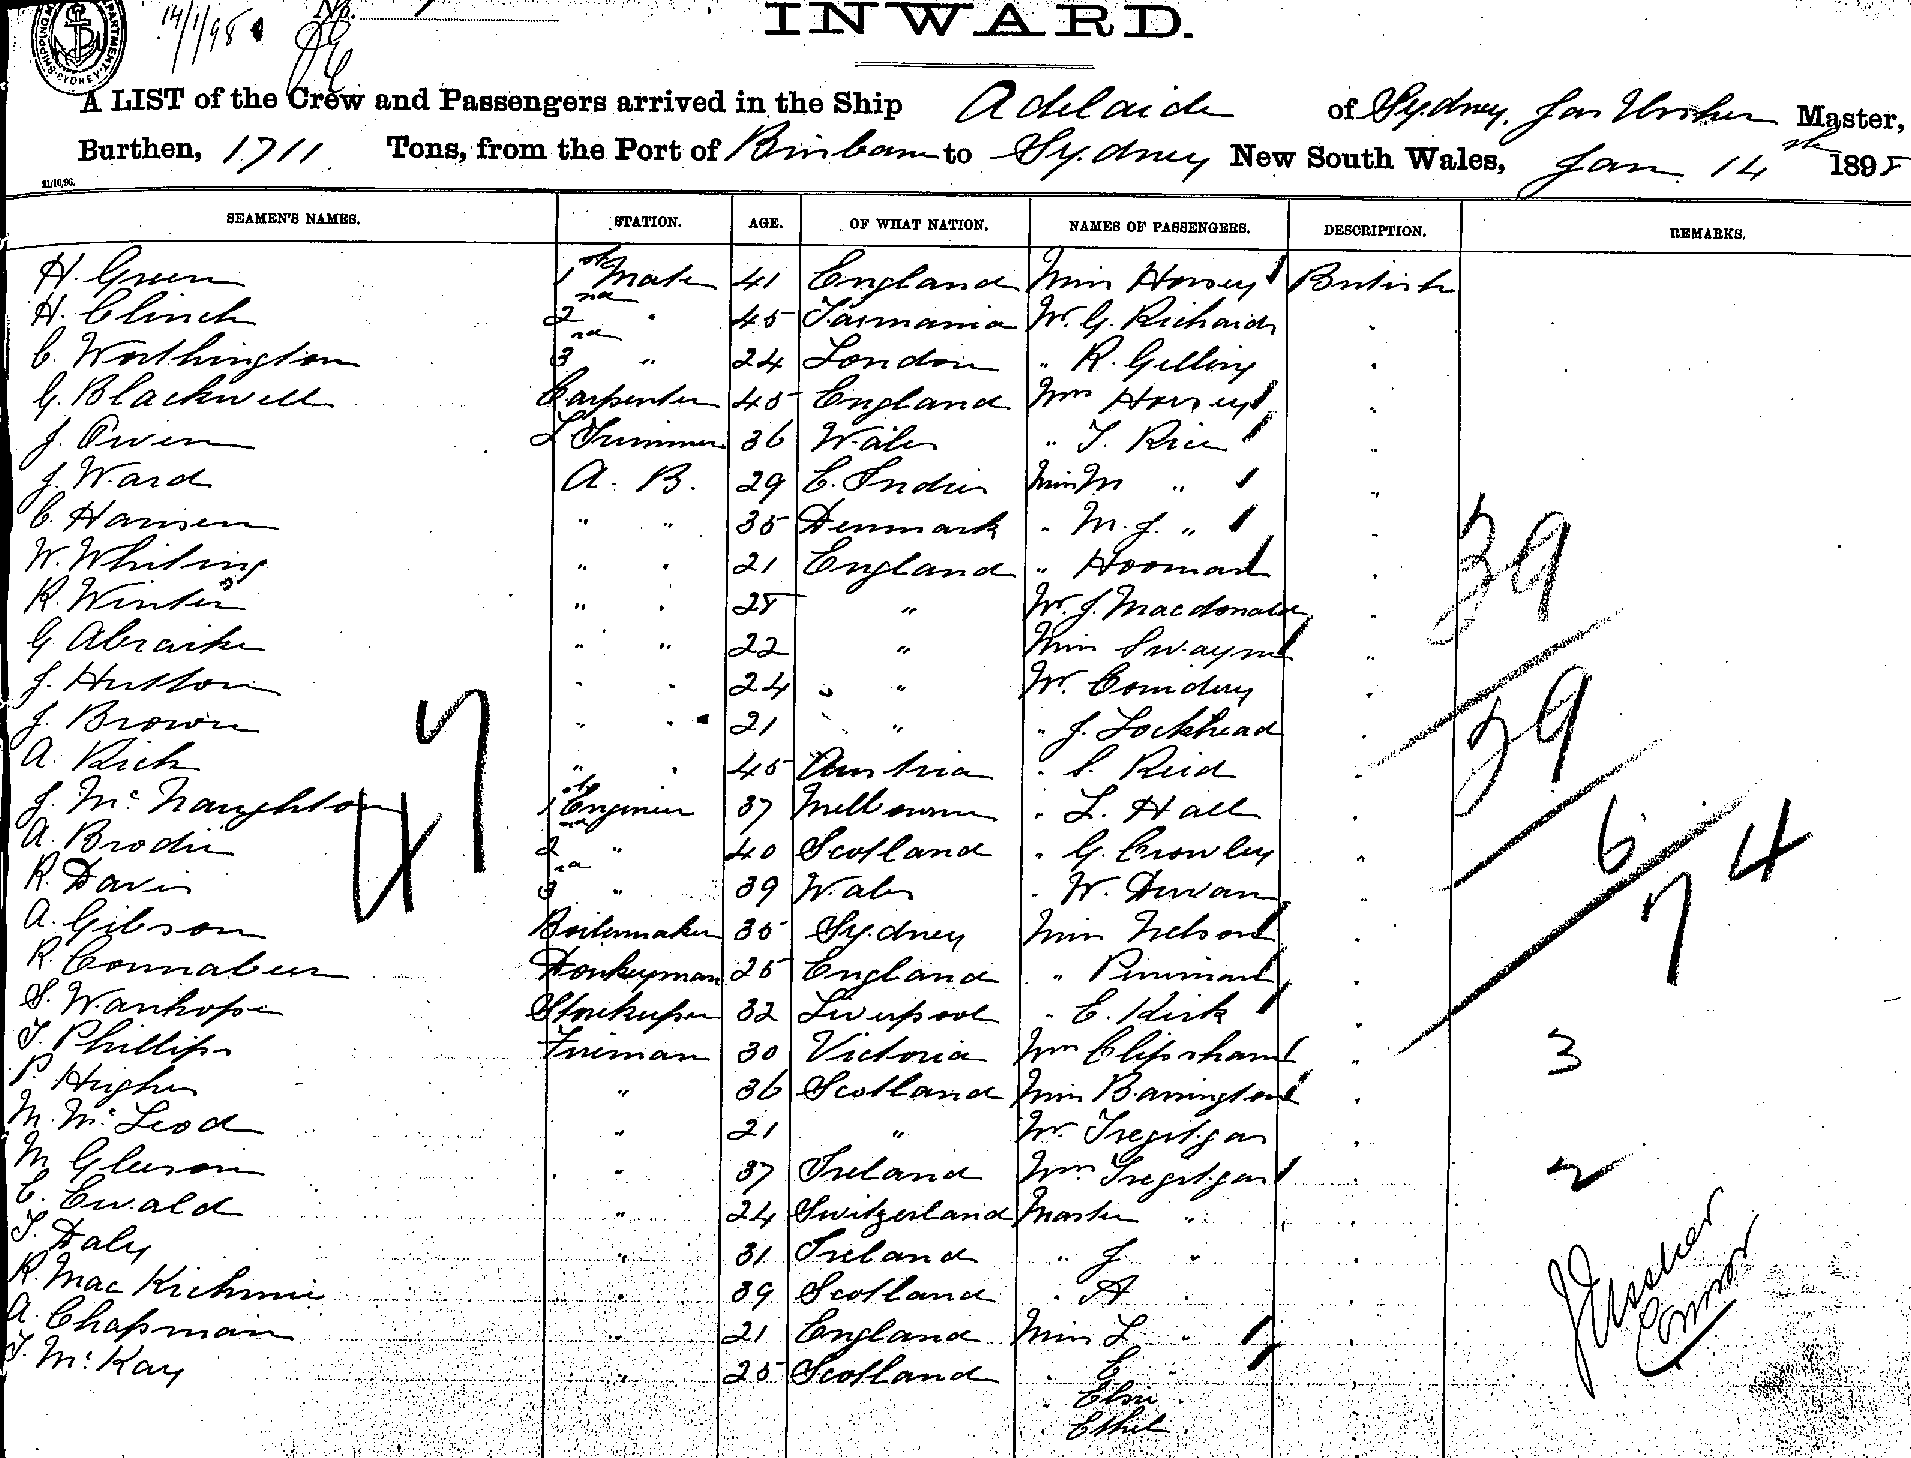 14/1/98
INWARD.
A LIST of the Crew and Passengers arrived in the Ship Adelaide of Sydney, Jas Ussher Master,
Burthen, 1711 Tons, from the Port of Brisbane to Sydney New South Wales, Jan 14th 1898
21/10/96.
SEAMEN'S NAMES. STATION. AGE. OF WHAT NATION. NAMES OF PASSENGERS. DESCRIPTION. REMARKS.
H. Green 1st Mate 41 England Miss Horsey British
H. Clinch 2nd " 45 Tasmania Mr. G. Richards "
C. Worthington 3rd " 24 London " R. Gelling "
G. Blackwell Carpenter 45 England Mrs Horsey "
J. Owen L Trimmer 36 Wales " T. Rice "
J. Ward A. B. 29 E. Indies Miss M " "
C. Hansen " " 35 Denmark " M. J. " "
W. Whiting " " 21 England " "
R. Winter " " 28 " Mr. J. Macdonald "
G " " 22 " Miss Swayne "
J. Hutton " " 24 " Mr. "
J. Brown " " 21 " " J. Lockhead "
A. Rich " " 45 Austria " S. Reid "
J. McNaughton 1st Engineer 37 Melbourne " L. Hall "
A. Brodie 2nd " 40 Scotland " G. Crowley "
R. Davis 3rd " 39 Wales " W. "
A. Gibson Boilermaker 35 Sydney Miss Nelson "
R. Donkeyman 25 England " "
S. Storekeeper 32 Liverpool " E. Kirk "
T. Phillips Fireman 30 Victoria Mrs Clipsham "
P. Hughes " 36 Scotland Miss Barrington "
M. McLeod " 21 " Mr. Tregilgas "
M. Gleeson " 37 Ireland Mrs. Tregilgas "
C. Ewald " 24 Switzerland Master " "
T. Daly " 31 Ireland " J " "
R. " 39 Scotland " A " "
A. Chapman " 21 England Miss L " "
T. McKay " 25 Scotland " E " "
" Elsie "
" Ethel "
47
39
39
6
74
3
2
J Ussher